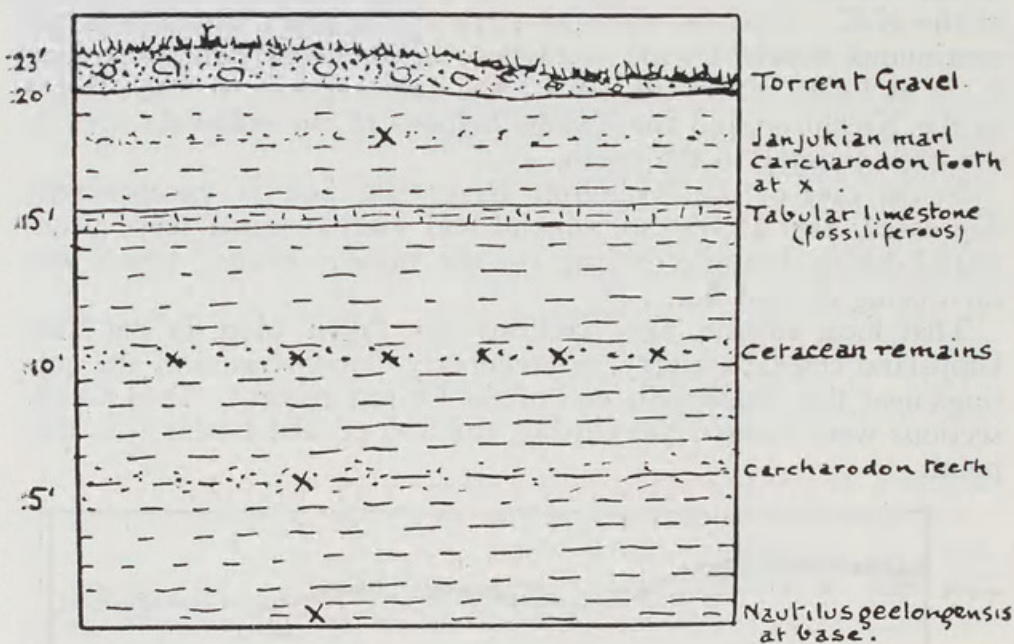 23'
Torrent Gravel.
20'
Janjukian marl
carcharodon tooth
at x
Tabular limestone
15'
(fossiliferous)
10'
Cetacean remains
carcharodon teeth
5'
Nautilus geelongensis
at base.